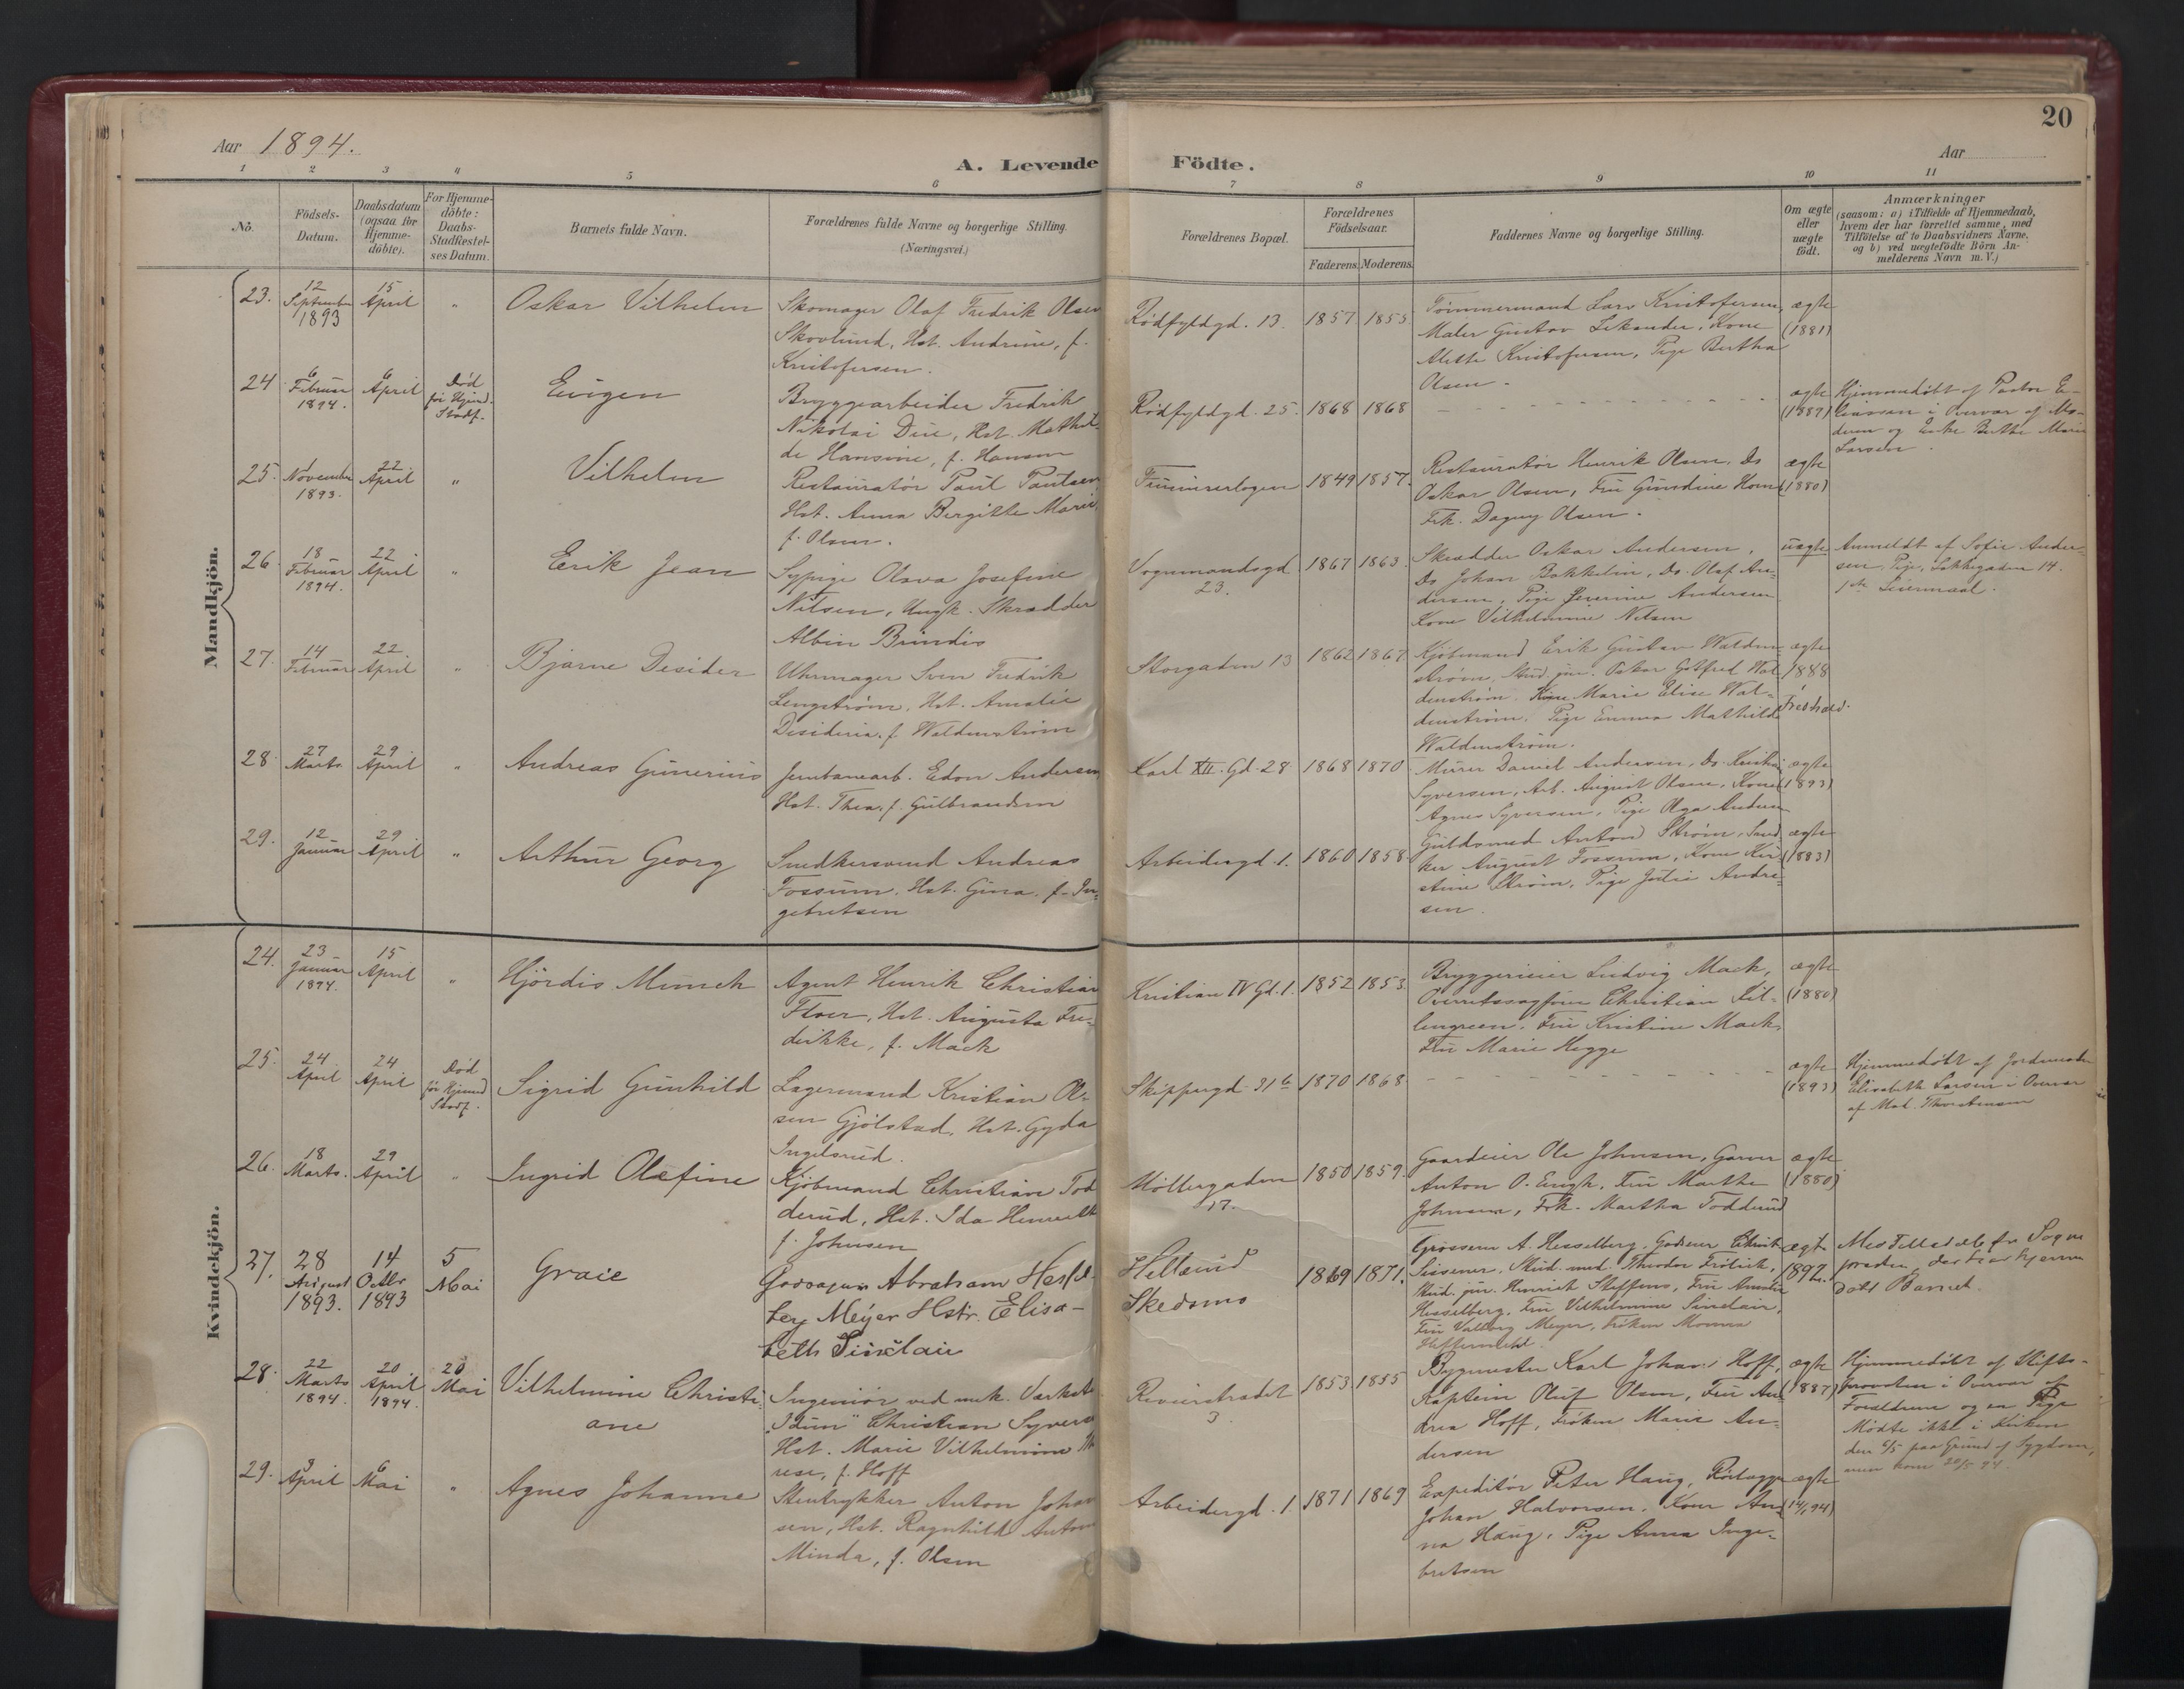 20
Aar 1894.
A. Levende Födte.
Aar
1 2 3 4 5 6 7 8 9 10 11
No.
Födsels-
Datum.
Daabsdatum
(ogsaa for
Hjemme-
döbte).
For Hjemme-
döbte:
Daabs-
Stadfestel-
ses Datum.
Barnets fulde Navn.
Forældrenes fulde Navne og borgerlige Stilling.
(Næringsvei.)
Forældrenes Bopæl.
Forældrenes
Födselsaar.
Faderens. Moderens.
Faddernes Navne og borgerlige Stilling.
Om ægte
eller
uægte
födt.
Anmærkninger
(saasom: a) i Tilfælde af Hjemmedaab,
hvem der har forrettet samme, med
Tilföielse af to Daabsvidners Navne,
og b) ved uægtefödte Börn An-
melderens Navn m. V.)
Mandkjön.
23.
12
September
1893
15
April
"
Oskar Vilhelm
Skomager Olaf Fredrik Olsen
Skovlund, Hst. Andrine, f.
Kristofersen.
Rödfyldgd. 13.
1857 1855
Tömmermand Lars Kristofersen,
Maler Gustav Kone
Kristofersen, Pige Bertha
Olsen.
ægte
(1881)
24
6
Februar
1894.
6
April
Död
för Hjemd.
Stadf.
Eugen
Bryggearbeider Fredrik
Nikolai Due, Hst. Mathil-
de Hansine, f. Hansen
Rödfyldgd. 25.
1868 1868
ægte
(1887)
Hjemmedöbt af Pastor E-
liassen i Overvær af Mo-
deren og Enke Berthe Marie
Larsen.
25.
1
November
1893.
22
April
"
Vilhelm
Restauratör Paul Paulsen
Hst. Anna Bergitte Marie,
f. Olsen.
Frimurerlogen
1849 1857.
Restauratör Henrik Olsen, Do
Oskar Olsen, Fru Gundine
Frk. Dagny Olsen.
ægte
(1880)
26
18
Februar
1894.
22
April
"
Erik Jean
Sypige Olava Josefine
Nilsen, Ungk. Skrædder
Albin Brundis
Vognmandsgd
23.
1867 1863.
Skrædder Oskar Andersen,
Do Johan Bakkelin, Do. Olaf An-
dersen, Pige Severine Andersen
Kone Vilhelmine Nilsen
uægte
Anmeldt af Sofie Ander-
sen, Pige, Lakkegaden 14.
1ste Leiermaal.
27.
14
Februar
22.
April
"
Bjarne Desider
Uhrmager Sven Fredrik
Lengström, Hst. Amalie
Desideria, f. Waldenström
Storgaden 13
1862 1867
Kjöbmand Erik Gustav Walden-
ström, Stud. jur. Oskar Gotfred Wal-
denström. Kone Marie Elise Wal-
denström. Pige Emma Mathilde
Waldenström.
ægte
1888
Fredhald.
28.
27
Marts
29
April
"
Andreas Gunerius
Jernbanearb. Edon Andersen
Hst. Thea, f. Gulbrandsen
Karl XII. Gd. 28
1868 1870
Murer Daniel Andersen, Do. Kristian
Syversen, Arb. August Olsen, Kone
Agnes Syversen, Pige Olga Andersen
ægte
(1893)
29.
12
Januar
29
April
"
Arthur Georg
Smedkersvend Andreas
Fossum, Hst. Gina, f. In-
gebretsen
Arbeidergd. 1.
1860 1858.
Guldsmed Anton Ström, Sned-
ker August Fossum, Kone Kir-
stine Ström, Pige Andre-
sen.
ægte
(1883)
Kvindekjön.
24.
23
Januar
1894.
15
April
"
Hjördis Munch
Agent Henrik Christian
Floer, Hst. Augusta Fre-
derikke, f. Mack
Kristian IV Gd. 1.
1852 1853
Bryggerieier Ludvig Mack,
Overretssagförer Christian Kil-
lengreen, Fru Kristine Mack,
Fru Marie Hegge
ægte
(1880)
25.
24
April
24
April
Död
för Hjemd
Stadf.
Sigrid Gunhild
Lagermand Kristian Ol-
sen Gjölstad, Hst. Gyda
Ingelsrud.
Skippergd. 31 b
1870 1868
ægte
(1893)
Hjemmedöbt af Jordmoder
Elisabeth Larsen i Overvær
af Mat. Thorstensen
26.
18
Marts.
29
April
"
Ingrid Olefine
Kjöbmand Christian Tod-
derud, Hst. Ida Henriette
f. Johnsen
Möllergaden
17.
1850 1859.
Gaardeier Ole Johnsen, Garver
Anton O. Engh, Fru Marthe
Johnsen, Frk. Martha Todderud
ægte
(1880)
27.
28
August
1893.
14
Octbr
1893
5
Mai
Graie
Godseier Abraham Hessel-
berg Meyer Hstr. Elisa-
beth Sinclair
Hellerud
Skedsmo
1869 1871.
Grosserer A. Hesselberg, Godseier Christ.
Sissener, Stud. med. Theodor Frölich,
Stud. jur. Henrich Steffens, Fru Amalie
Hesselberg, Fru Vilhelmine Sinclair,
Fru Valborg Meyer, Fröken Monna
Heffermehl.
ægte
1892.
Med Tilladelse fra Sogne
præsten, der har hjemme
döbt Barnet.
28.
22
Marts
1894.
20
April
1894.
20
Mai
Vilhelmine Christi-
ane
Ingeniör ved mek. Værksted
"Kun" Christian Syvers
Hst. Marie Vilhelmine The-
rese, f. Hoff
Revierstrædet
3
1853 1855
Bygmester Karl Johan Hoff,
Kaptein Oluf Olsen, Fru An-
drea Hoff, Fröken Marie An-
dersen
ægte
(1887)
Hjemmedöbt af Stifts-
provsten i Overvær af
Forældrene og en Pige
Mödte ikke i Kirken
den 6/5 paa Grund af Sygdom,
men kom 20/5 94.
29.
9
April
6
Mai
"
Agnes Johanne
Stentrykker Anton Johan-
sen, Hst. Ragnhild Anton
Minda, f. Olsen
Arbeidergd. 1.
1871 1869
Expeditör Peter Haug, Rörlægger
Johan Halvorsen, Kone An-
na Haug, Pige Anna Inge-
bretsen
ægte
(14/1 94)